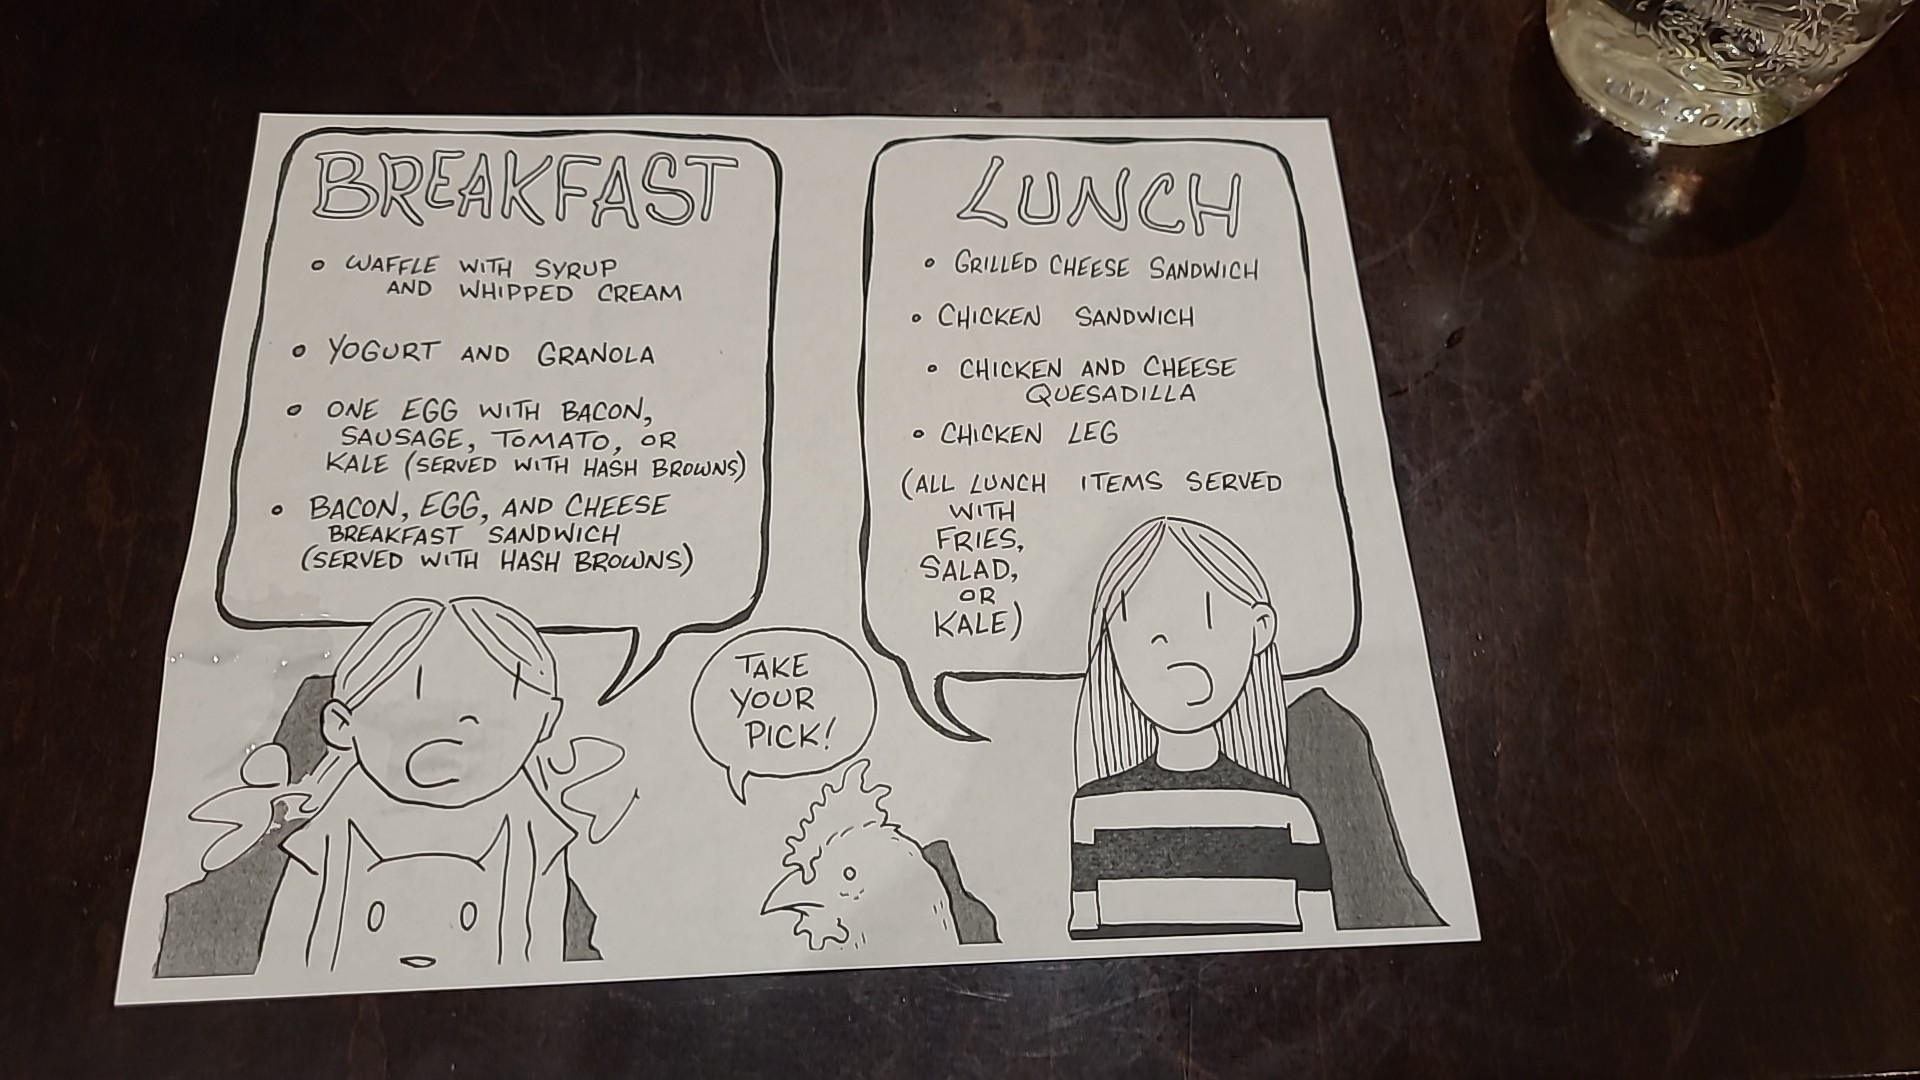 BREAKFAST
• WAFFLE WITH SYRUP
AND WHIPPED CREAM
• YOGURT AND GRANOLA
• ONE EGG WITH BACON,
SAUSAGE, TOMATO, OR
KALE (SERVED WITH HASH BROWNS)
• BACON, EGG, AND CHEESE
BREAKFAST SANDWICH
(SERVED WITH HASH BROWNS)
LUNCH
• GRILLED CHEESE SANDWICH
• CHICKEN SANDWICH
• CHICKEN AND CHEESE
QUESADILLA
• CHICKEN LEG
(ALL LUNCH ITEMS SERVED
WITH
FRIES,
SALAD,
OR
KALE)
TAKE
YOUR
PICK!
MASON